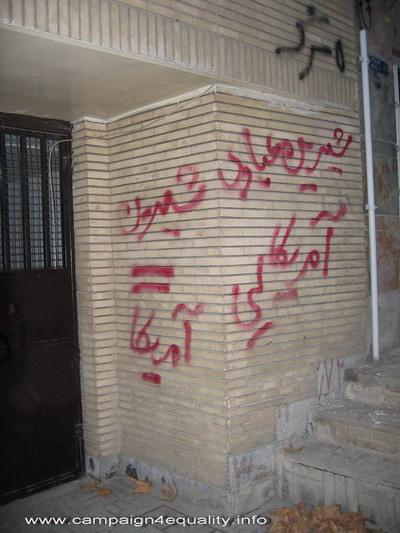 شیرین عبادی
آمریکایی
=
آمریکا
www.campaign4equality.info